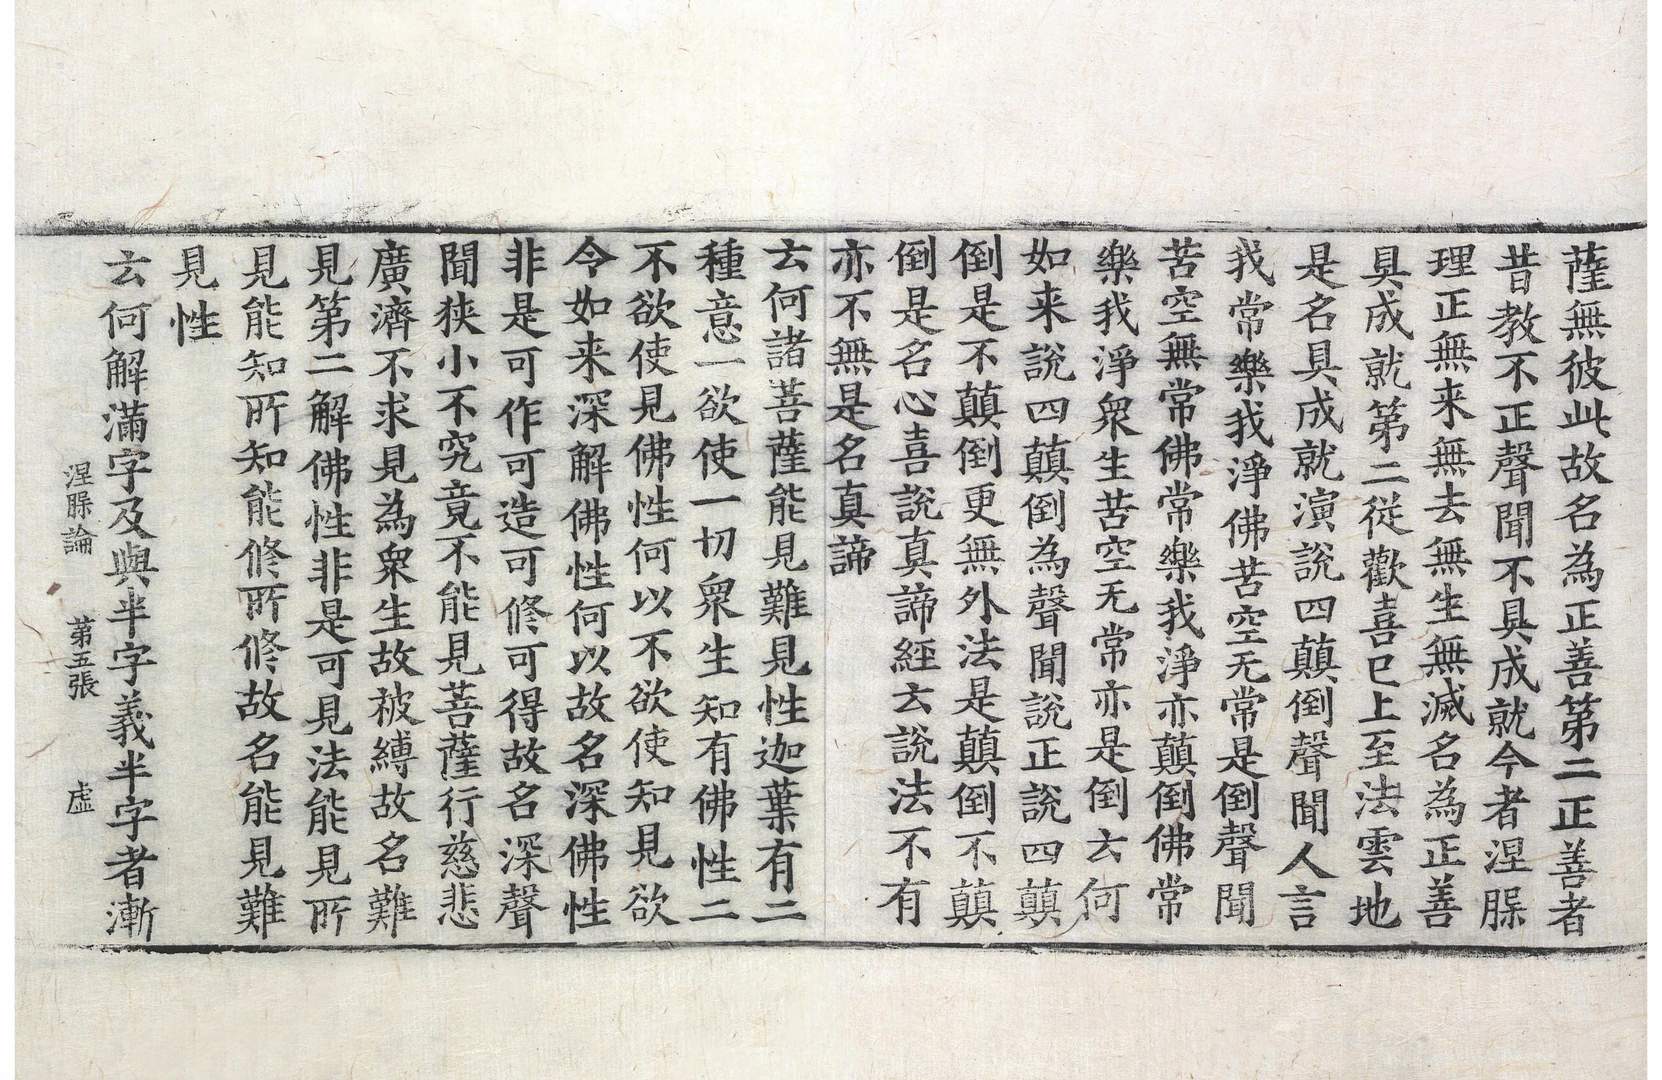 薩無彼此故名為正善第二正善者
昔教不正聲聞不具成就今者涅槃
理正無来無去無生無滅名為正善
具成就第二從歡喜已上至法雲地
是名具成就演說四顛倒聲聞人言
我常樂我淨佛苦空无常是倒聲聞
苦空無常佛常樂我淨亦顛倒佛常
樂我淨衆生苦空无常亦是倒云何
如来說四顛倒為聲聞說正說四顛
倒是不顛倒更無外法是顛倒不顛
倒是名心喜說真諦經云說法不有
亦不無是名真諦
云何諸菩薩能見難見性迦葉有二
種意一欲使一切衆生知有佛性二
不欲使見佛性何以不欲使知見欲
令如来深解佛性何以故名深佛性
非是可作可造可修可得故名深聲
聞狹小不究竟不能見菩薩行慈悲
廣濟不求見為衆生故被縛故名難
見第二解佛性非是可見法能見所
見能知所知能修所修故名能見難
見性
云何解滿字及與半字義半字者漸
涅槃論 第五張 虛